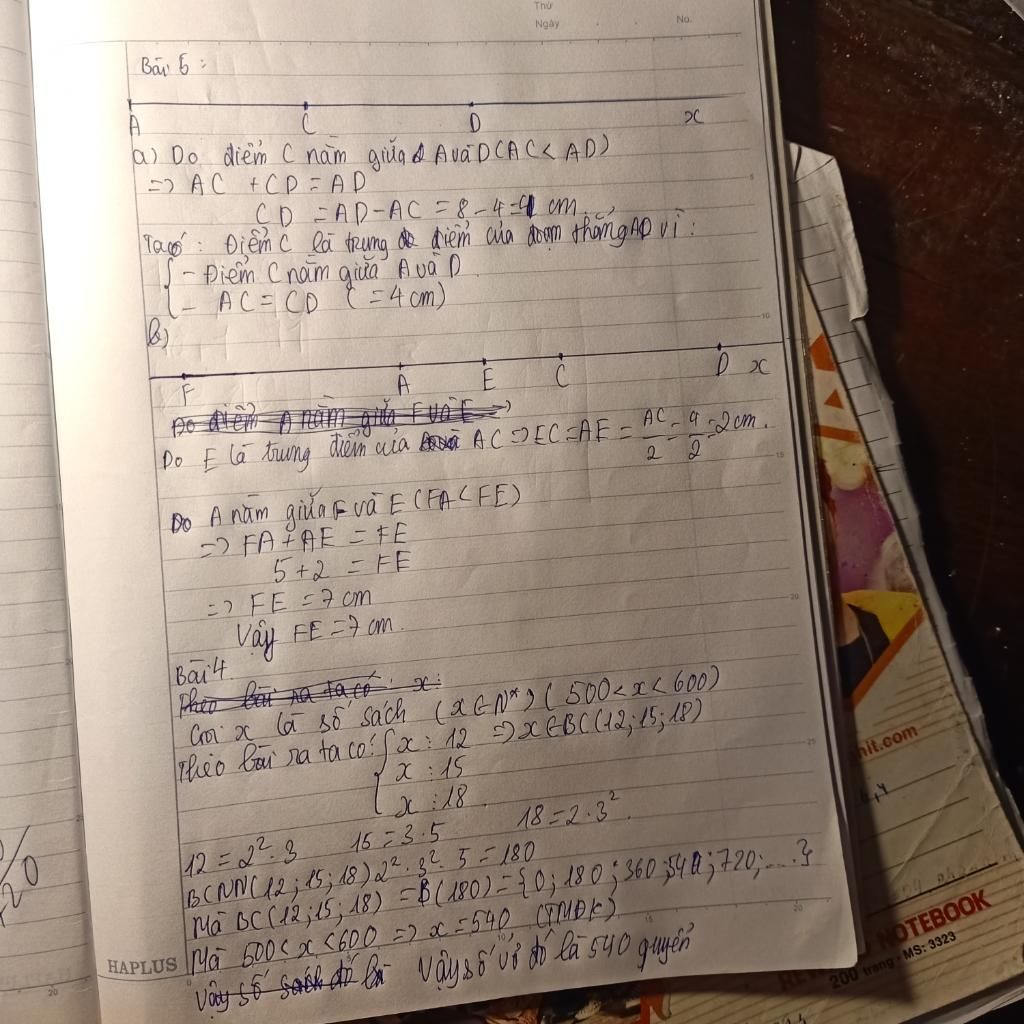 Thứ
Ngày No.
Bài 5 :
A C D x
a) Do điểm C nằm giữa A và D (AC < AD)
=> AC + CD = AD
CD = AD - AC = 8 - 4 = 4 cm
Ta có : Điểm C là trung điểm của đoạn thẳng AD vì :
{ - Điểm C nằm giữa A và D.
- AC = CD (= 4 cm)
b)
F A E C D x
Do điểm A nằm giữa F và E =>
Do E là trung điểm của AC => EC = AE = AC/2 = 4/2 = 2 cm.
Do A nằm giữa F và E (FA < FE)
=> FA + AE = FE
5 + 2 = FE
=> FE = 7 cm
Vậy FE = 7 cm.
Bài 4.
Theo bài ra ta có x :
Gọi x là số sách (x ∈ N*) (500 < x < 600)
Theo bài ra ta có : { x : 12 => x ∈ BC(12; 15; 18)
x : 15
x : 18
12 = 2². 3 15 = 3. 5 18 = 2. 3².
BCNN(12; 15; 18) 2². 3². 5 = 180
Mà BC(12; 15; 18) = B(180) = {0; 180; 360; 540; 720; ...}
Mà 500 < x < 600 => x = 540 (TMĐK)
Vậy số sách đó là Vậy số vở đó là 540 quyển
HAPLUS
hit.com
NOTEBOOK
200 trang - MS: 3323